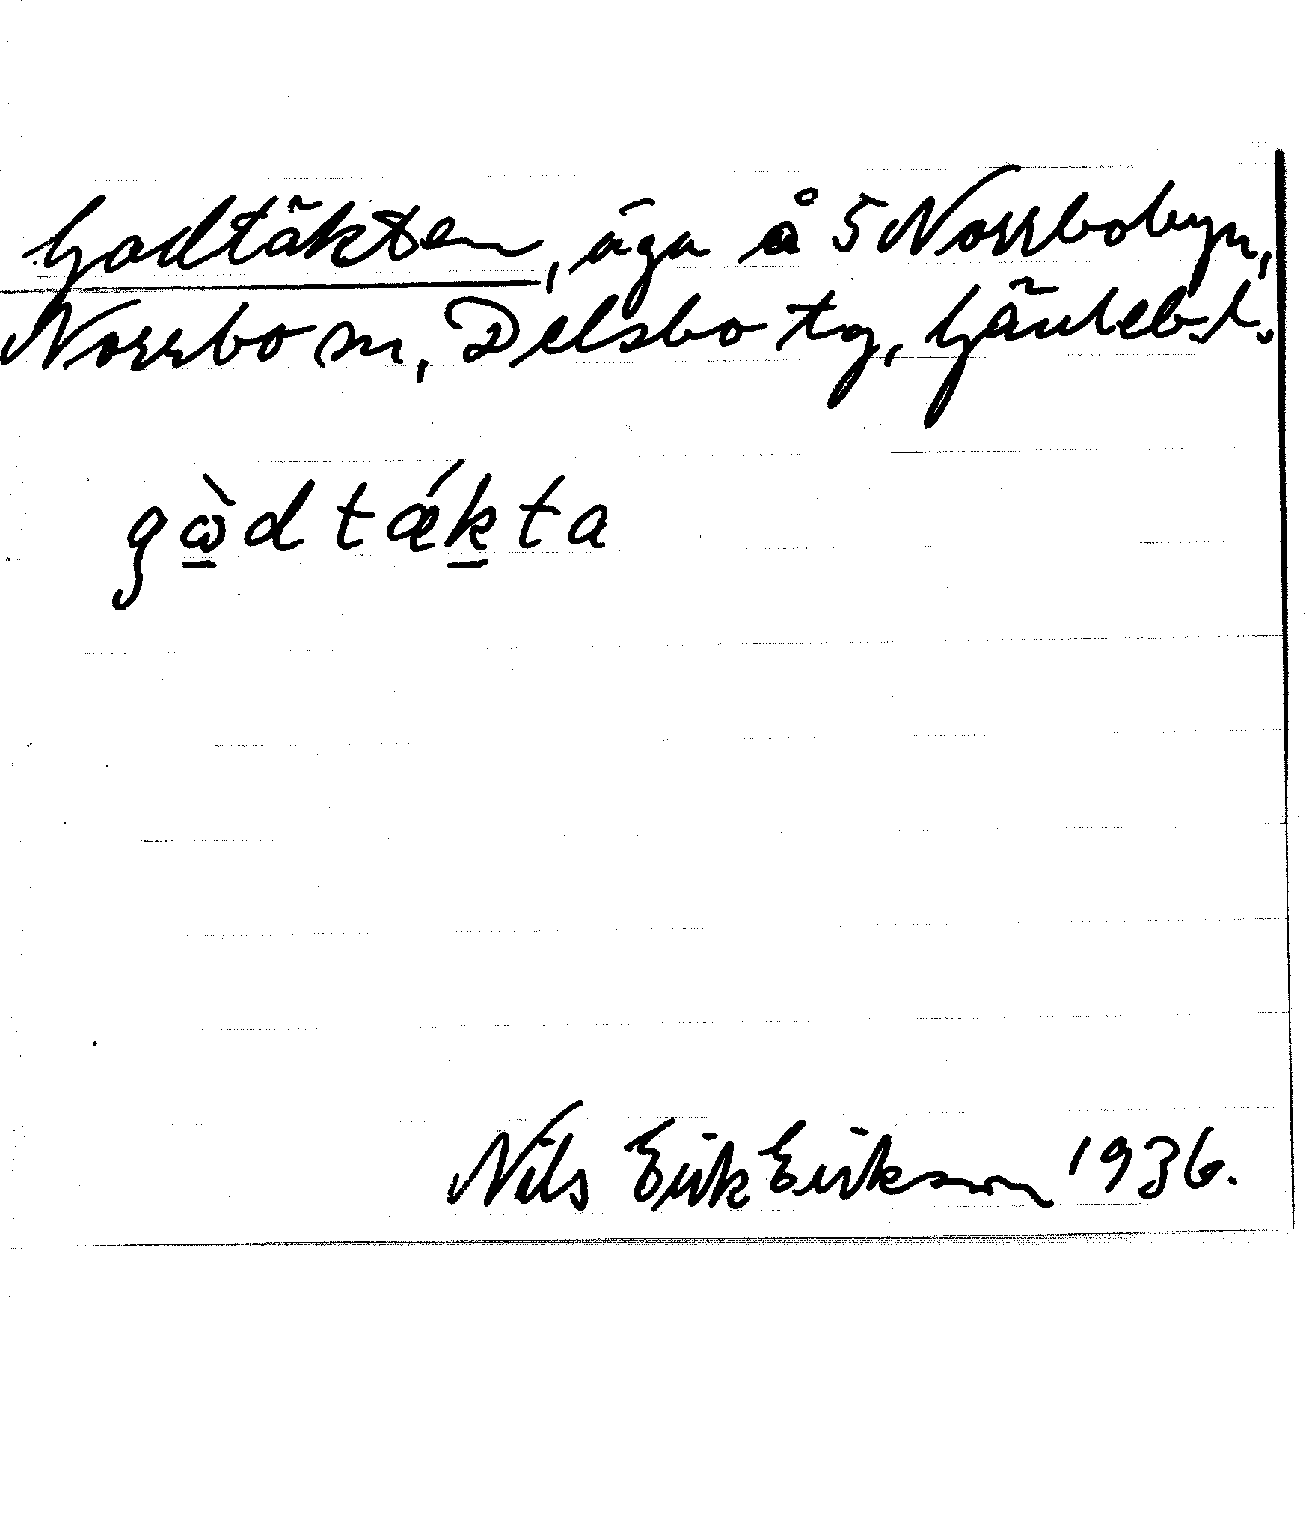 Godtäkten, äga å 5 Norrbobyn,
Norrbo sn, Delsbo tg, Gävlebs l.
gὼdtǽkta
Nils Erik Eriksson 1936.